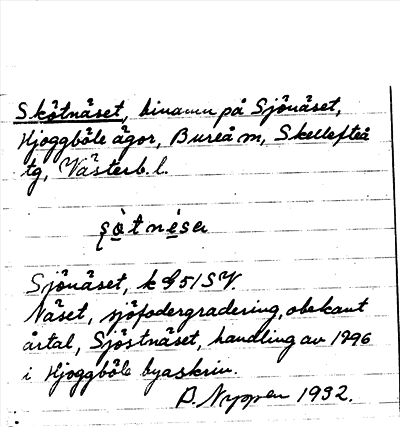 Skötnäset, binamn på Sjönäset,
Hjoggböle ägor, Bureå m, Skellefteå
tg, Västerb. l.
Sjönäset, k 51 SV.
Näset, sjöfodergradering, obekant
årtal, Sjöstnäset, handling av 1796
i Hjoggböle byaskrin.
P. Nyppen 1932.